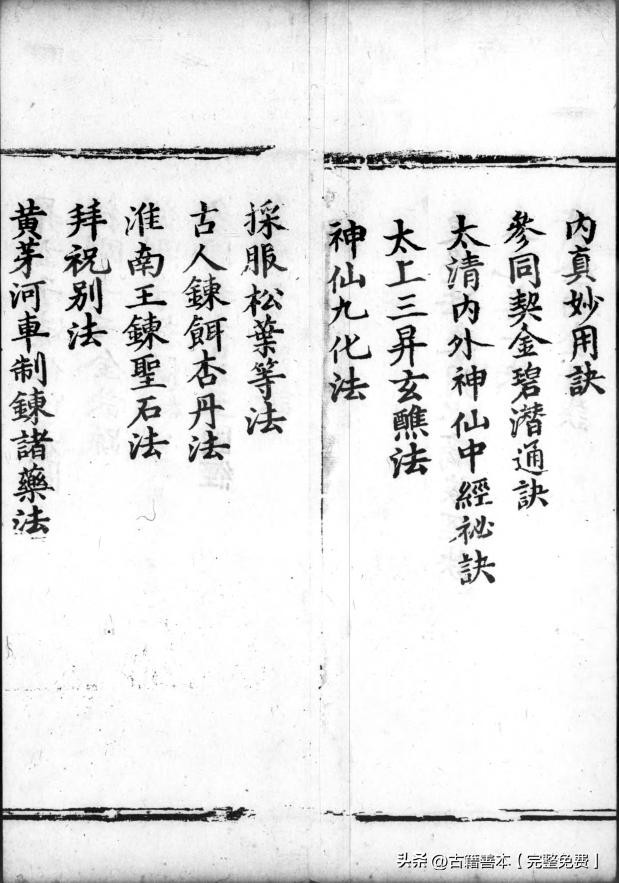 內真妙用訣
參同契金碧潛通訣
太清內外神仙中經祕訣
太上三昇玄醮法
神仙九化法
採服松葉等法
古人鍊餌杏丹法
淮南王鍊聖石法
拜祝別法
黃芽河車制鍊諸藥法
头条 @古籍善本【完整免费】